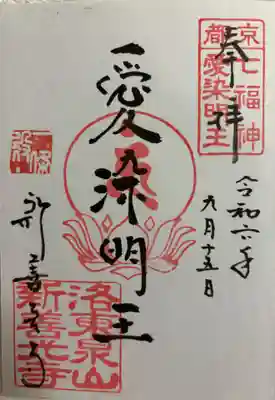 奉拝
京都七福神
愛染明王
令和六年
九月十五日
愛染明王
洛東泉山
新善光寺